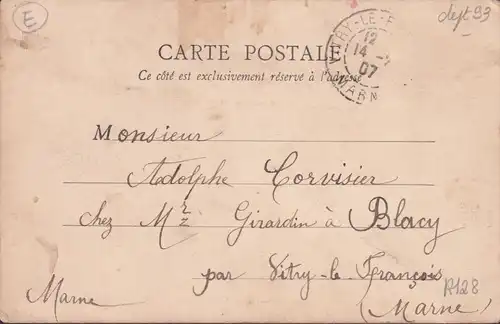 E
dept 93
CARTE POSTALE
Ce côté est exclusivement réservé à l'adresse
VITRY-LE-F
12
14
07
MARN
Monsieur
Adolphe Corvisier
chez Mr Girardin à Blacy
par Vitry-le-François
Marne
(Marne)
R128